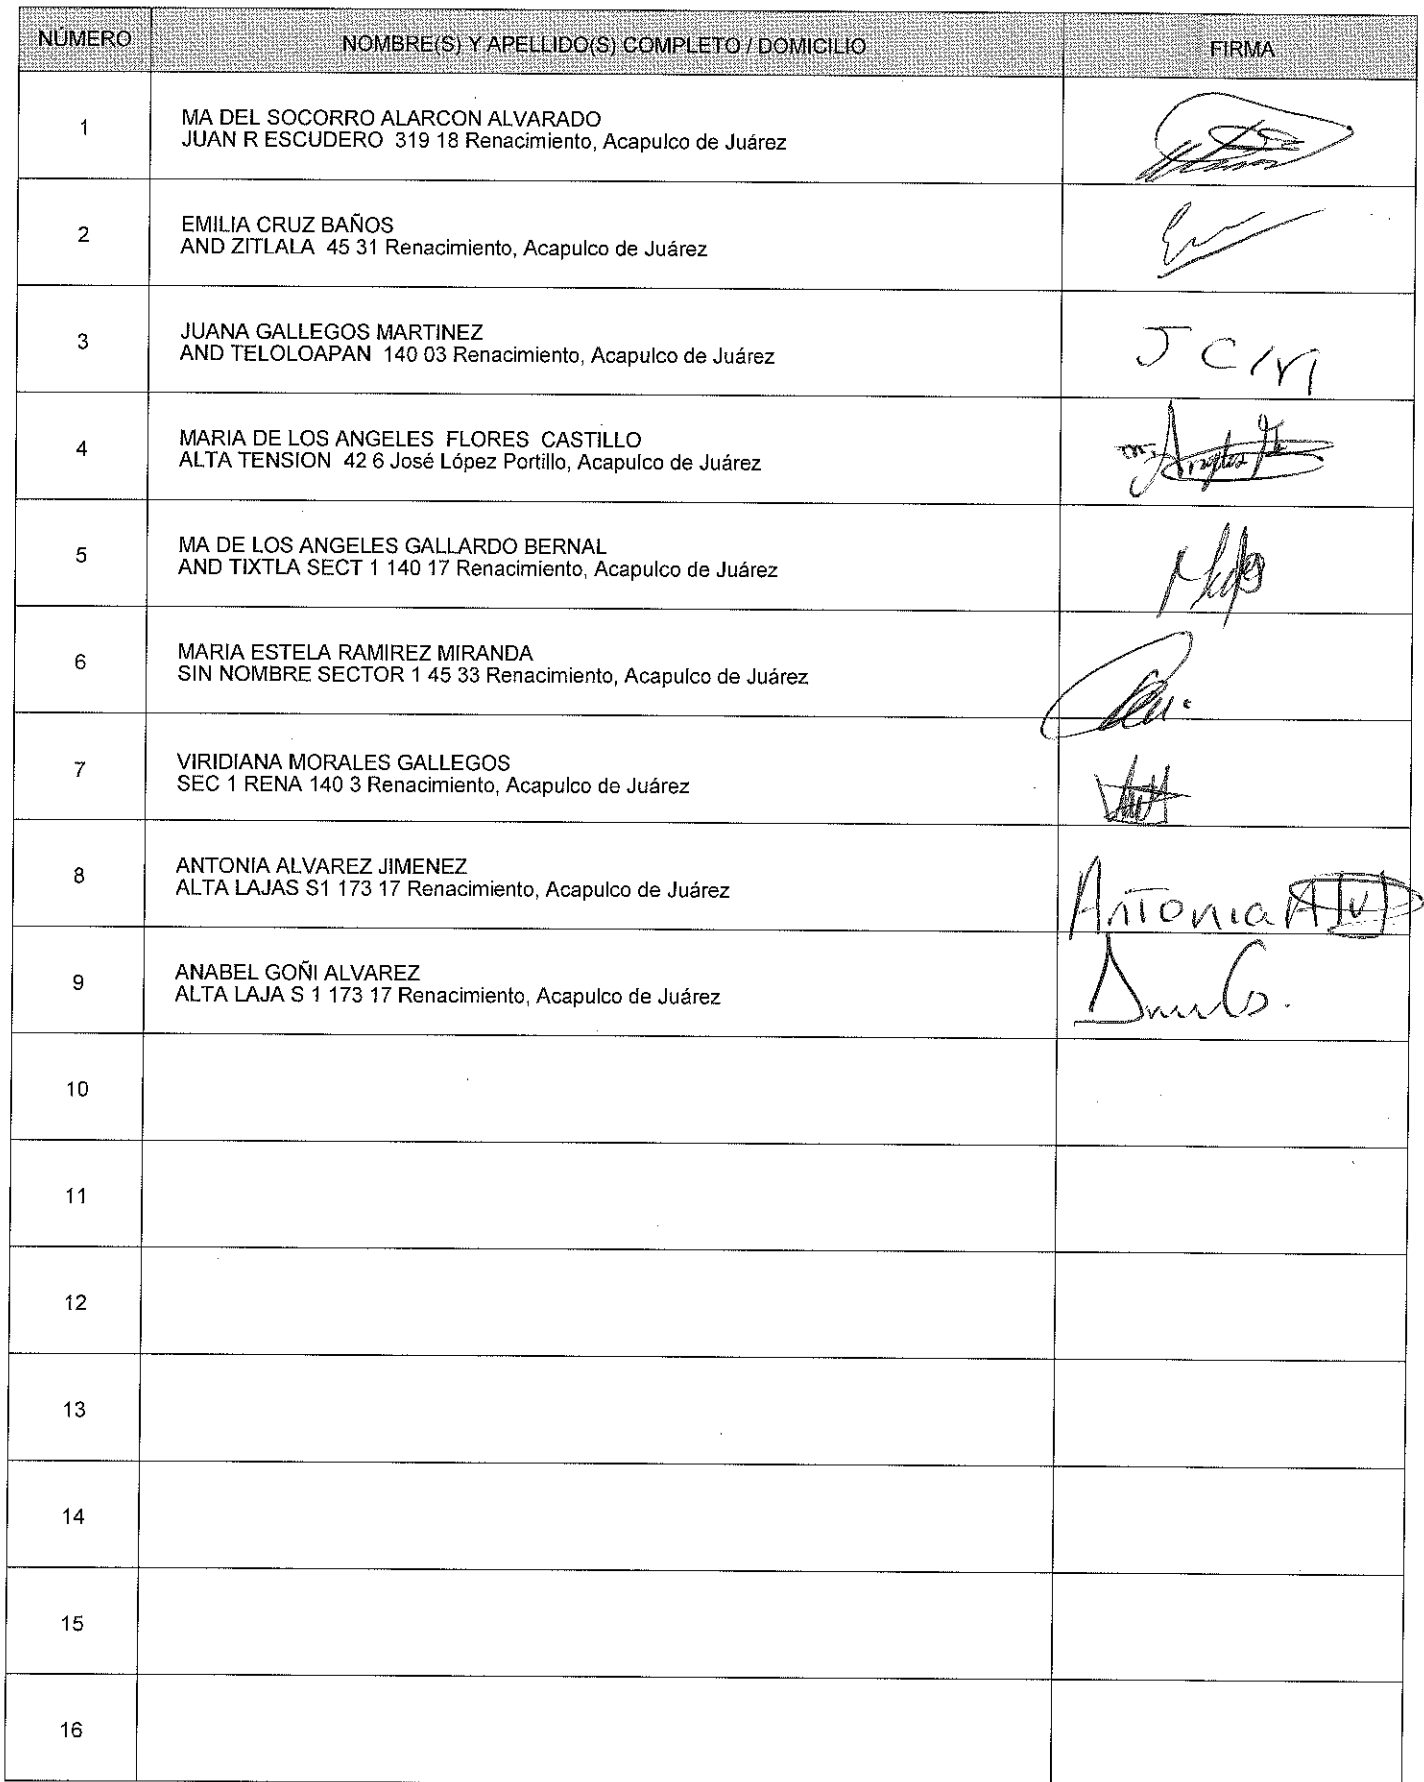 NÚMERO NOMBRE(S) Y APELLIDO(S) COMPLETO / DOMICILIO FIRMA
1 MA DEL SOCORRO ALARCON ALVARADO
JUAN R ESCUDERO 319 18 Renacimiento, Acapulco de Juárez
2 EMILIA CRUZ BAÑOS
AND ZITLALA 45 31 Renacimiento, Acapulco de Juárez
3 JUANA GALLEGOS MARTINEZ
AND TELOLOAPAN 140 03 Renacimiento, Acapulco de Juárez
4 MARIA DE LOS ANGELES FLORES CASTILLO
ALTA TENSION 42 6 José López Portillo, Acapulco de Juárez
5 MA DE LOS ANGELES GALLARDO BERNAL
AND TIXTLA SECT 1 140 17 Renacimiento, Acapulco de Juárez
6 MARIA ESTELA RAMIREZ MIRANDA
SIN NOMBRE SECTOR 1 45 33 Renacimiento, Acapulco de Juárez
7 VIRIDIANA MORALES GALLEGOS
SEC 1 RENA 140 3 Renacimiento, Acapulco de Juárez
8 ANTONIA ALVAREZ JIMENEZ
ALTA LAJAS S1 173 17 Renacimiento, Acapulco de Juárez
Antonia Alv
9 ANABEL GOÑI ALVAREZ
ALTA LAJA S 1 173 17 Renacimiento, Acapulco de Juárez
10
11
12
13
14
15
16